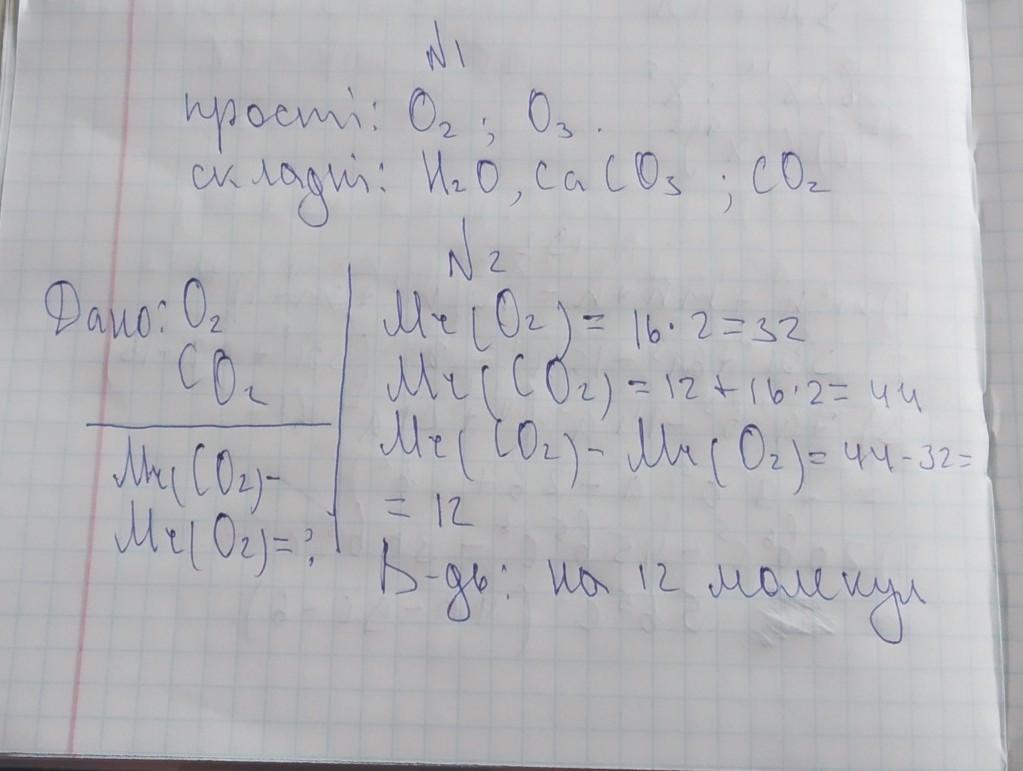 N1
прості: O₂; O₃.
складні: H₂O, CaCO₃; CO₂
N2
Дано: O₂
CO₂
Mr(CO₂)-
Mr(O₂)=?
Mr(O₂)= 16·2=32
Mr(CO₂)=12+16·2=44
Mr(CO₂)- Mr(O₂)=44-32=
= 12
В-дь: на 12 молекул